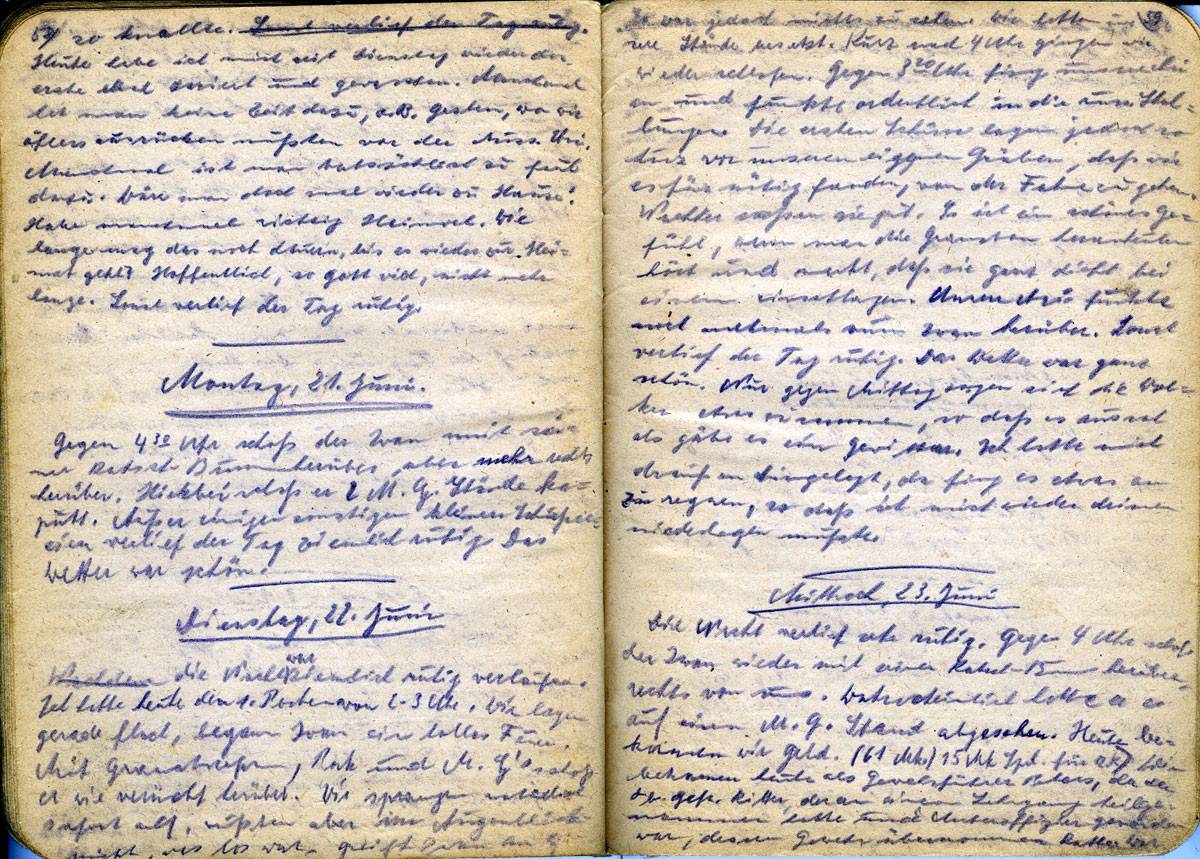 58
so knallte. Sonst verlief der Tag ruhig.
Heute habe ich mich seit Dienstag wieder das
erste Mal rasiert und gewaschen. Manchmal
hat man keine Zeit dazu, z.B. gestern, wo wir
öfters ausrücken mußten vor der
Manchmal ist man tatsächlich zu faul
dazu. Wäre man doch mal wieder zu Hause!
Habe manchmal richtig Heimweh. Wie
lange mag das noch dauern, bis es wieder zur Hei-
mat geht? Hoffentlich, so Gott will, nicht mehr
lange. Sonst verlief der Tag ruhig.
Montag, 21. Juni.
Gegen 4 30 Uhr schoß der Iwan mit sei-
ner Ratsch-Bumm herüber, aber mehr rechts
herüber. Hierbei schoß er 2 M.G. Stände ka-
putt. Außer einigen sonstigen kleinen Schieße-
reien verlief der Tag ziemlich ruhig. Das
Wetter war schön.
Dienstag, 22. Juni
die Nacht war ziemlich ruhig verlaufen.
Ich hatte heute den 1. Posten von 2-3 Uhr. Wir lagen
gerade flach, begann Iwan ein tolles Feuer.
Mit Granatwerfern, Pak und M.G's schoß
er wie verrückt herüber. Wir sprangen
sofort auf, wußten aber im Augenblick
nicht, was los war.
59
Es war jedoch nichts zu sehen. Wir hatten
sere Stände besetzt. Kurz nach 4 Uhr gingen wir
wieder schlafen. Gegen 8 20 Uhr fing
an und funkte ordentlich in die Stel-
lungen. Die ersten Schüsse lagen jedoch so
kurz vor unseren eigenen Gräben, daß wir
es für nötig fanden, von der Fahne zu gehen.
Nachher saßen sie gut. Es ist ein schönes Ge-
fühl, wenn man die Granaten heranheulen
hört und merkt, daß sie ganz dicht bei
einem einschlagen. Unsere Arie funkte
auch mehrmals zum Iwan herüber. Sonst
verlief der Tag ruhig. Das Wetter war ganz
schön. Nur gegen Mittag zogen sich die Wol-
ken etwas zusammen, so daß es aussah
als gäbe es ein Gewitter. Ich hatte mich
draußen hingelegt, da fing es etwas an
zu regnen, so daß ich mich wieder drinnen
niederlegen mußte.
Mittwoch, 23. Juni
Die Nacht verlief sehr ruhig. Gegen 4 Uhr schoß
der Iwan wieder mit einer Ratsch-Bumm herüber,
rechts von uns. Wahrscheinlich hatte er es
auf einen M.G. Stand abgesehen. Heute be-
kamen wir Geld. (61 Mk) 15 Mk
bekamen heute als Gewehrführer Peters, da der
Ritter, der an einem Lehrgang teilge-
nommen hatte und Unteroffizier geworden
war, dessen Gewehr übernommen